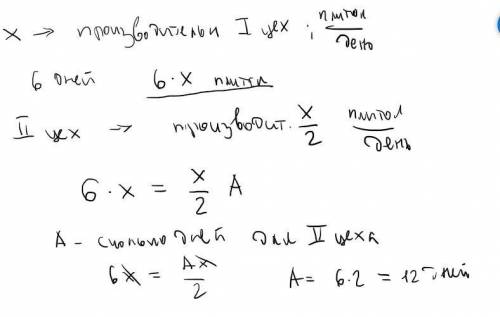 x → производительн I цех ; плиток/день
6 дней 6 · x плиток
II цех → производит. x/2 плиток/день
6 · x = x/2 A
A – сколько дней для II цеха
6x = Ax/2 A = 6·2 = 12 дней